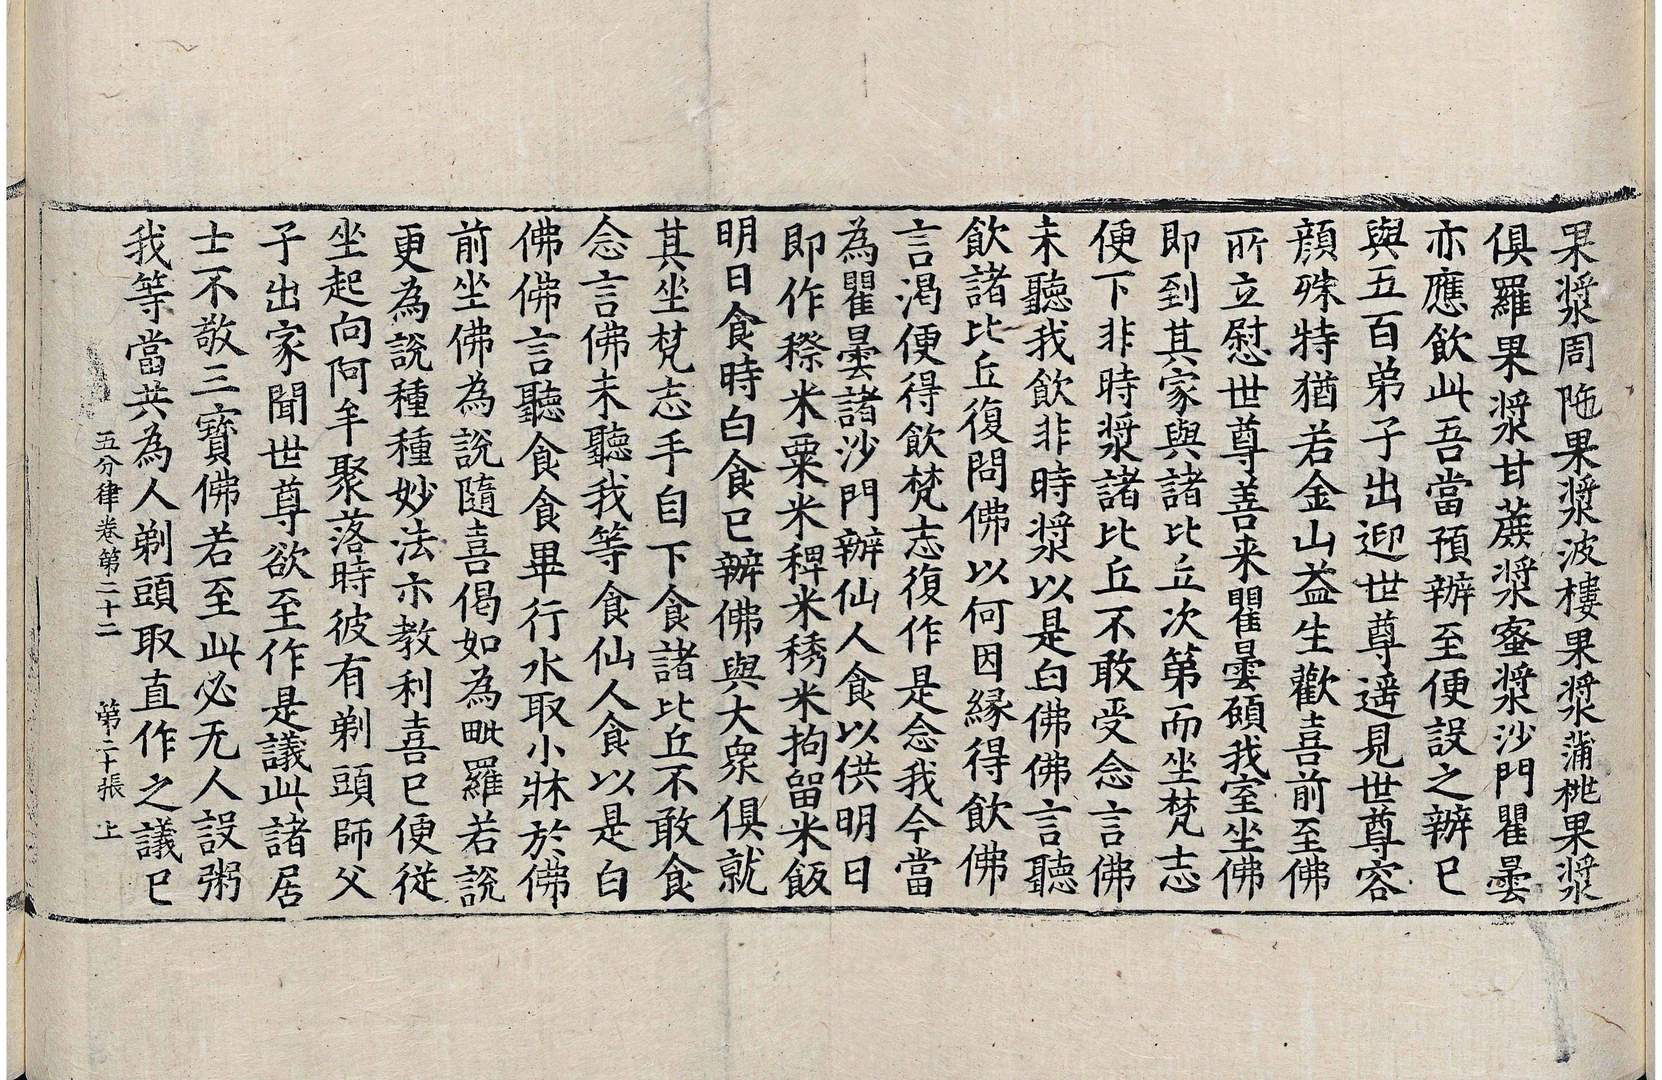 果漿周陁果漿波樓果漿蒲桃果漿
俱羅果漿甘蔗漿蜜漿沙門瞿曇
亦應飲此吾當預辦至便設之辦已
與五百弟子出迎世尊遥見世尊容
顔殊特猶若金山益生歡喜前至佛
所立慰世尊善来瞿曇顧我室坐佛
即到其家與諸比丘次第而坐梵志
便下非時漿諸比丘不敢受念言佛
未聽我飲非時漿以是白佛佛言聽
飲諸比丘復問佛以何因緣得飲佛
言渴便得飲梵志復作是念我今當
為瞿曇諸沙門辦仙人食以供明日
即作穄米粟米稗米莠米拘留米飯
明日食時白食已辦佛與大衆俱就
其坐梵志手自下食諸比丘不敢食
念言佛未聽我等食仙人食以是白
佛佛言聽食食畢行水取小牀於佛
前坐佛為說隨喜偈如為毗羅若說
更為說種種妙法示教利喜已便従
坐起向阿牟聚落時彼有剃頭師父
子出家聞世尊欲至作是議此諸居
士不敬三寶佛若至此必无人設粥
我等當共為人剃頭取直作之議已
五分律卷第二十二 第二十張 上